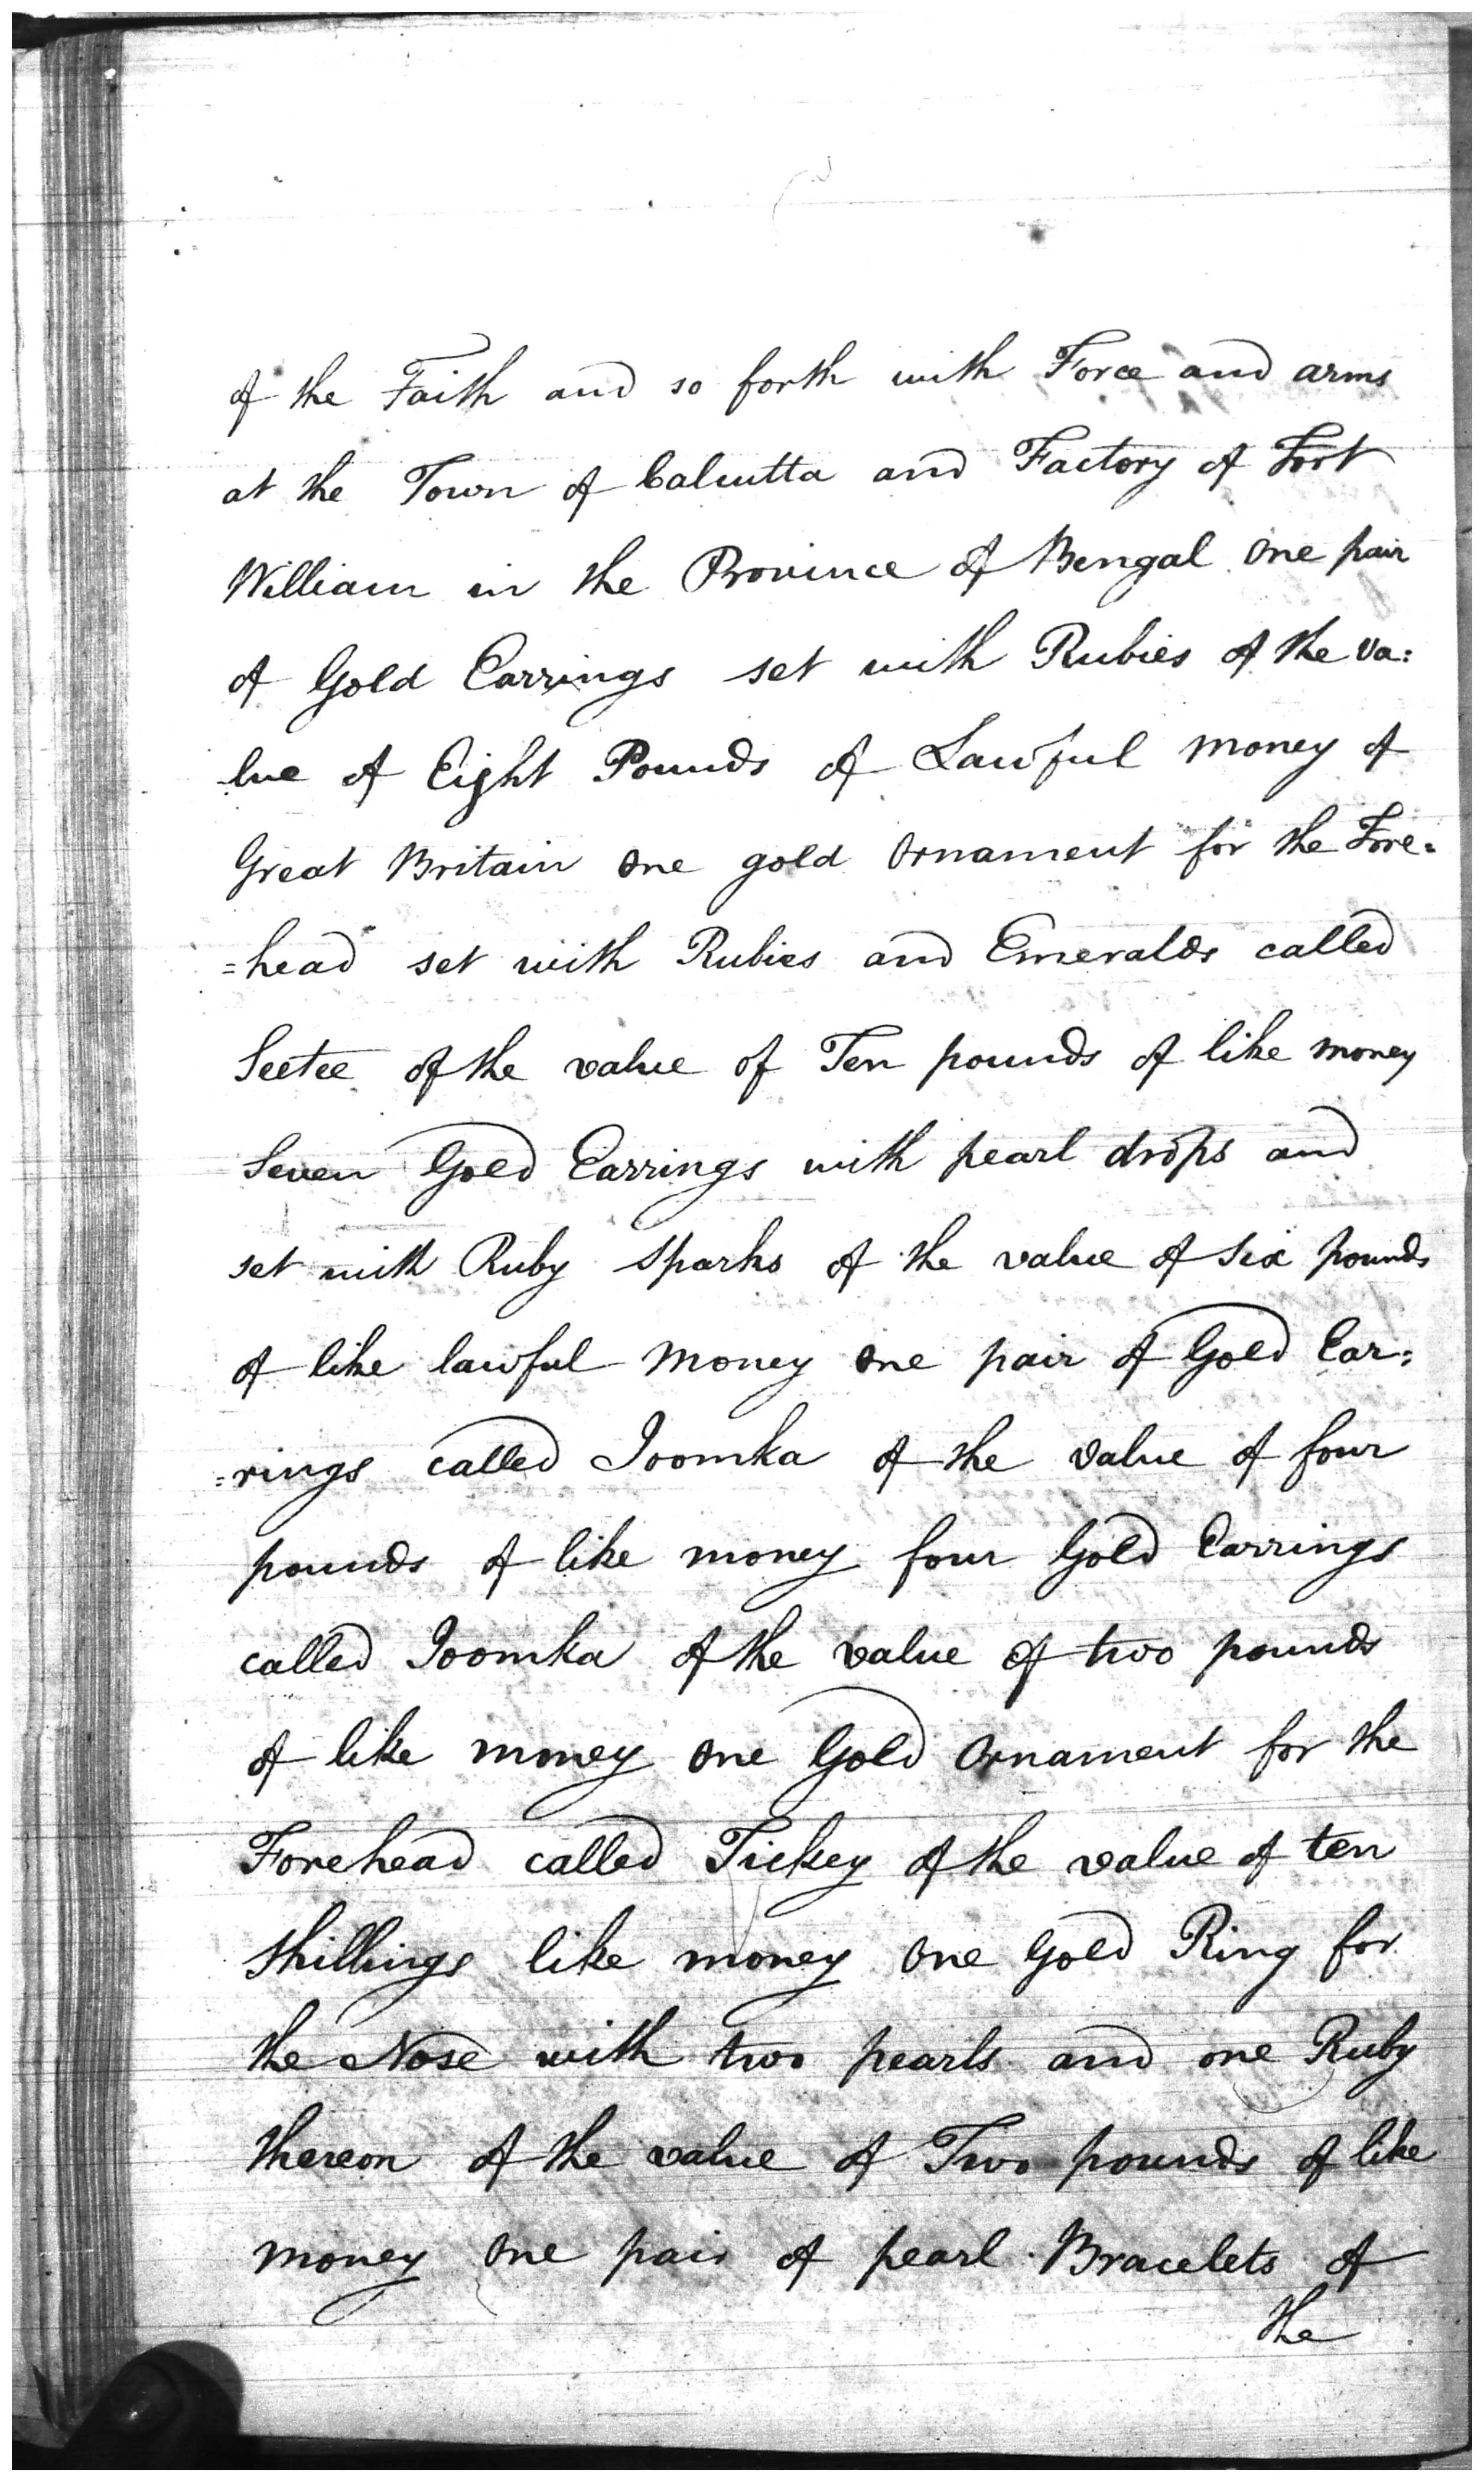 of the Faith and so forth with Force and arms
at the Town of Calcutta and Factory of Fort
William in the Province of Bengal One pair
of Gold Earrings set with Rubies of the va:
lue of Eight Pounds of Lawful money of
Great Britain One gold Ornament for the Fore=
=head set with Rubies and Emeralds called
Seetee of the value of Ten pounds of like money
Seven Gold Earrings with pearl drops and
set with Ruby Sparks of the value of Six pounds
of like lawful money One pair of Gold Ear=
=rings called Joomka of the value of four
pounds of like money four Gold Earrings
called Joomka of the value of two pounds
of like money One Gold Ornament for the
Forehead called Tickey of the value of ten
Shillings like money One Gold Ring for
the Nose with two pearls and one Ruby
thereon of the value of Two pounds of like
money One pair of pearl Bracelets of
the